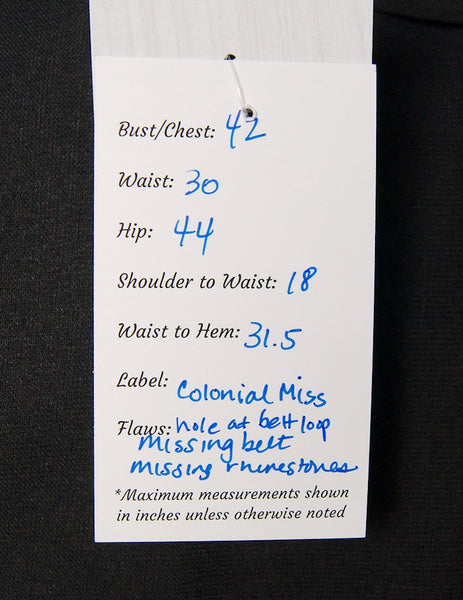 Bust/Chest: 42
Waist: 30
Hip: 44
Shoulder to Waist: 18
Waist to Hem: 31.5
Label: Colonial Miss
Flaws: hole at belt loop
missing belt
missing rhinestones
*Maximum measurements shown
in inches unless otherwise noted